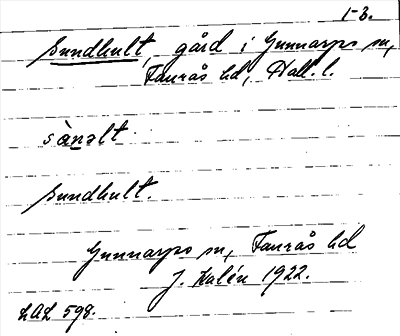 1-3.
Sundhult, gård i Gunnarps sn,
Faurås hd, Hall. l.
sànəlt
Sundhult.
Gunnarps sn, Faurås hd
J. Kalén 1922.
LAL 598.